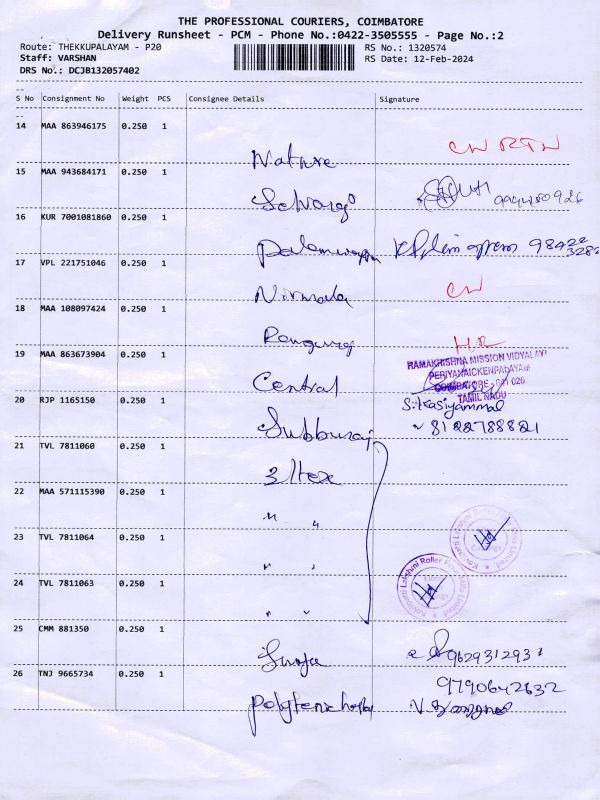 THE PROFESSIONAL COURIERS, COIMBATORE
Delivery Runsheet - PCM - Phone No.:0422-3505555 - Page No.:2
Route: THEKKUPALAYAM - P20 RS No.: 1320574
Staff: VARSHAN RS Date: 12-Feb-2024
DRS No.: DCJB132057402
S No Consignment No Weight PCS Consignee Details Signature
14 MAA 863946175 0.250 1
Nature CN RTN
15 MAA 943684171 0.250 1
Selvaraj
16 KUR 7001081860 0.250 1
98422
17 VPL 221751046 0.250 1
Nirmala CN
18 MAA 108097424 0.250 1
H.R
19 MAA 863673904 0.250 1
RAMAKRISHNA MISSION VIDYALAYA
PERIYANAICKENPALAYAM
Central COIMBATORE - 641 020
TAMIL NADU
20 RJP 1165150 0.250 1
S. Kasiyammal
Subburaj 8122788821
21 TVL 7811060 0.250 1
22 MAA 571115390 0.250 1
" "
23 TVL 7811064 0.250 1
" "
24 TVL 7811063 0.250 1
" "
25 CMM 881350 0.250 1
26 TNJ 9665734 0.250 1
9790642632